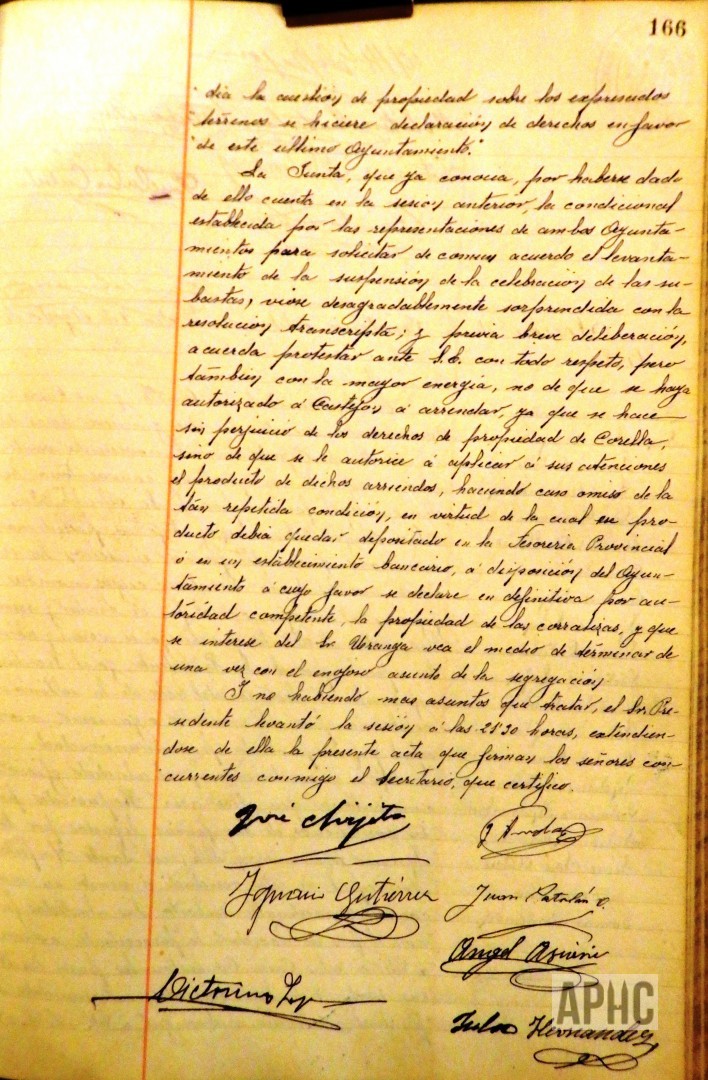 166
"dia la cuestión de propiedad sobre los expresados
"terrenos se hiciere declaración de derechos en favor
"de este ultimo Ayuntamiento."
La Junta, que ya conocia, por haberse dado
de ello cuenta en la sesión anterior, la condicional
establecida por las representaciones de ambos Ayunta-
mientos para solicitar de comun acuerdo el levanta-
miento de la suspensión de la celebración de las su-
bastas, viose desagradablemente sorprendida con la
resolucion transcripta; y previa breve deliberación,
acuerda protestar ante S.E. con todo respeto, pero
también con la mayor energia, no de que se haya
autorizado á Castejon á arrendar, ya que se hace
sin perjuicio de los derechos de propiedad de Corella,
sino de que se le autorice á aplicar á sus atenciones
el producto de dichos arriendos, haciendo caso omiso de la
tán repetida condición, en virtud de la cual su pro-
ducto debia quedar depositado en la Tesoreria Provincial
ó en un establecimiento bancario, á disposición del Ayun-
tamiento á cuyo favor se declare en definitiva por au-
toridad competente, la propiedad de las corralizas, y que
se interese del Sr. Uranga vea el medio de terminar de
una vez con el enojoso asunto de la segregación.
Y no habiendo mas asuntos que tratar, el Sr. Pre-
sidente levantó la sesión á las 21'30 horas, extendien-
dose de ella la presente acta que firman los señores con-
currentes conmigo el Secretario, que certifico.
José
Ignacio Gutiérrez
Juan Catalán
Angel
Victorino
Julio Hernandez
APHC